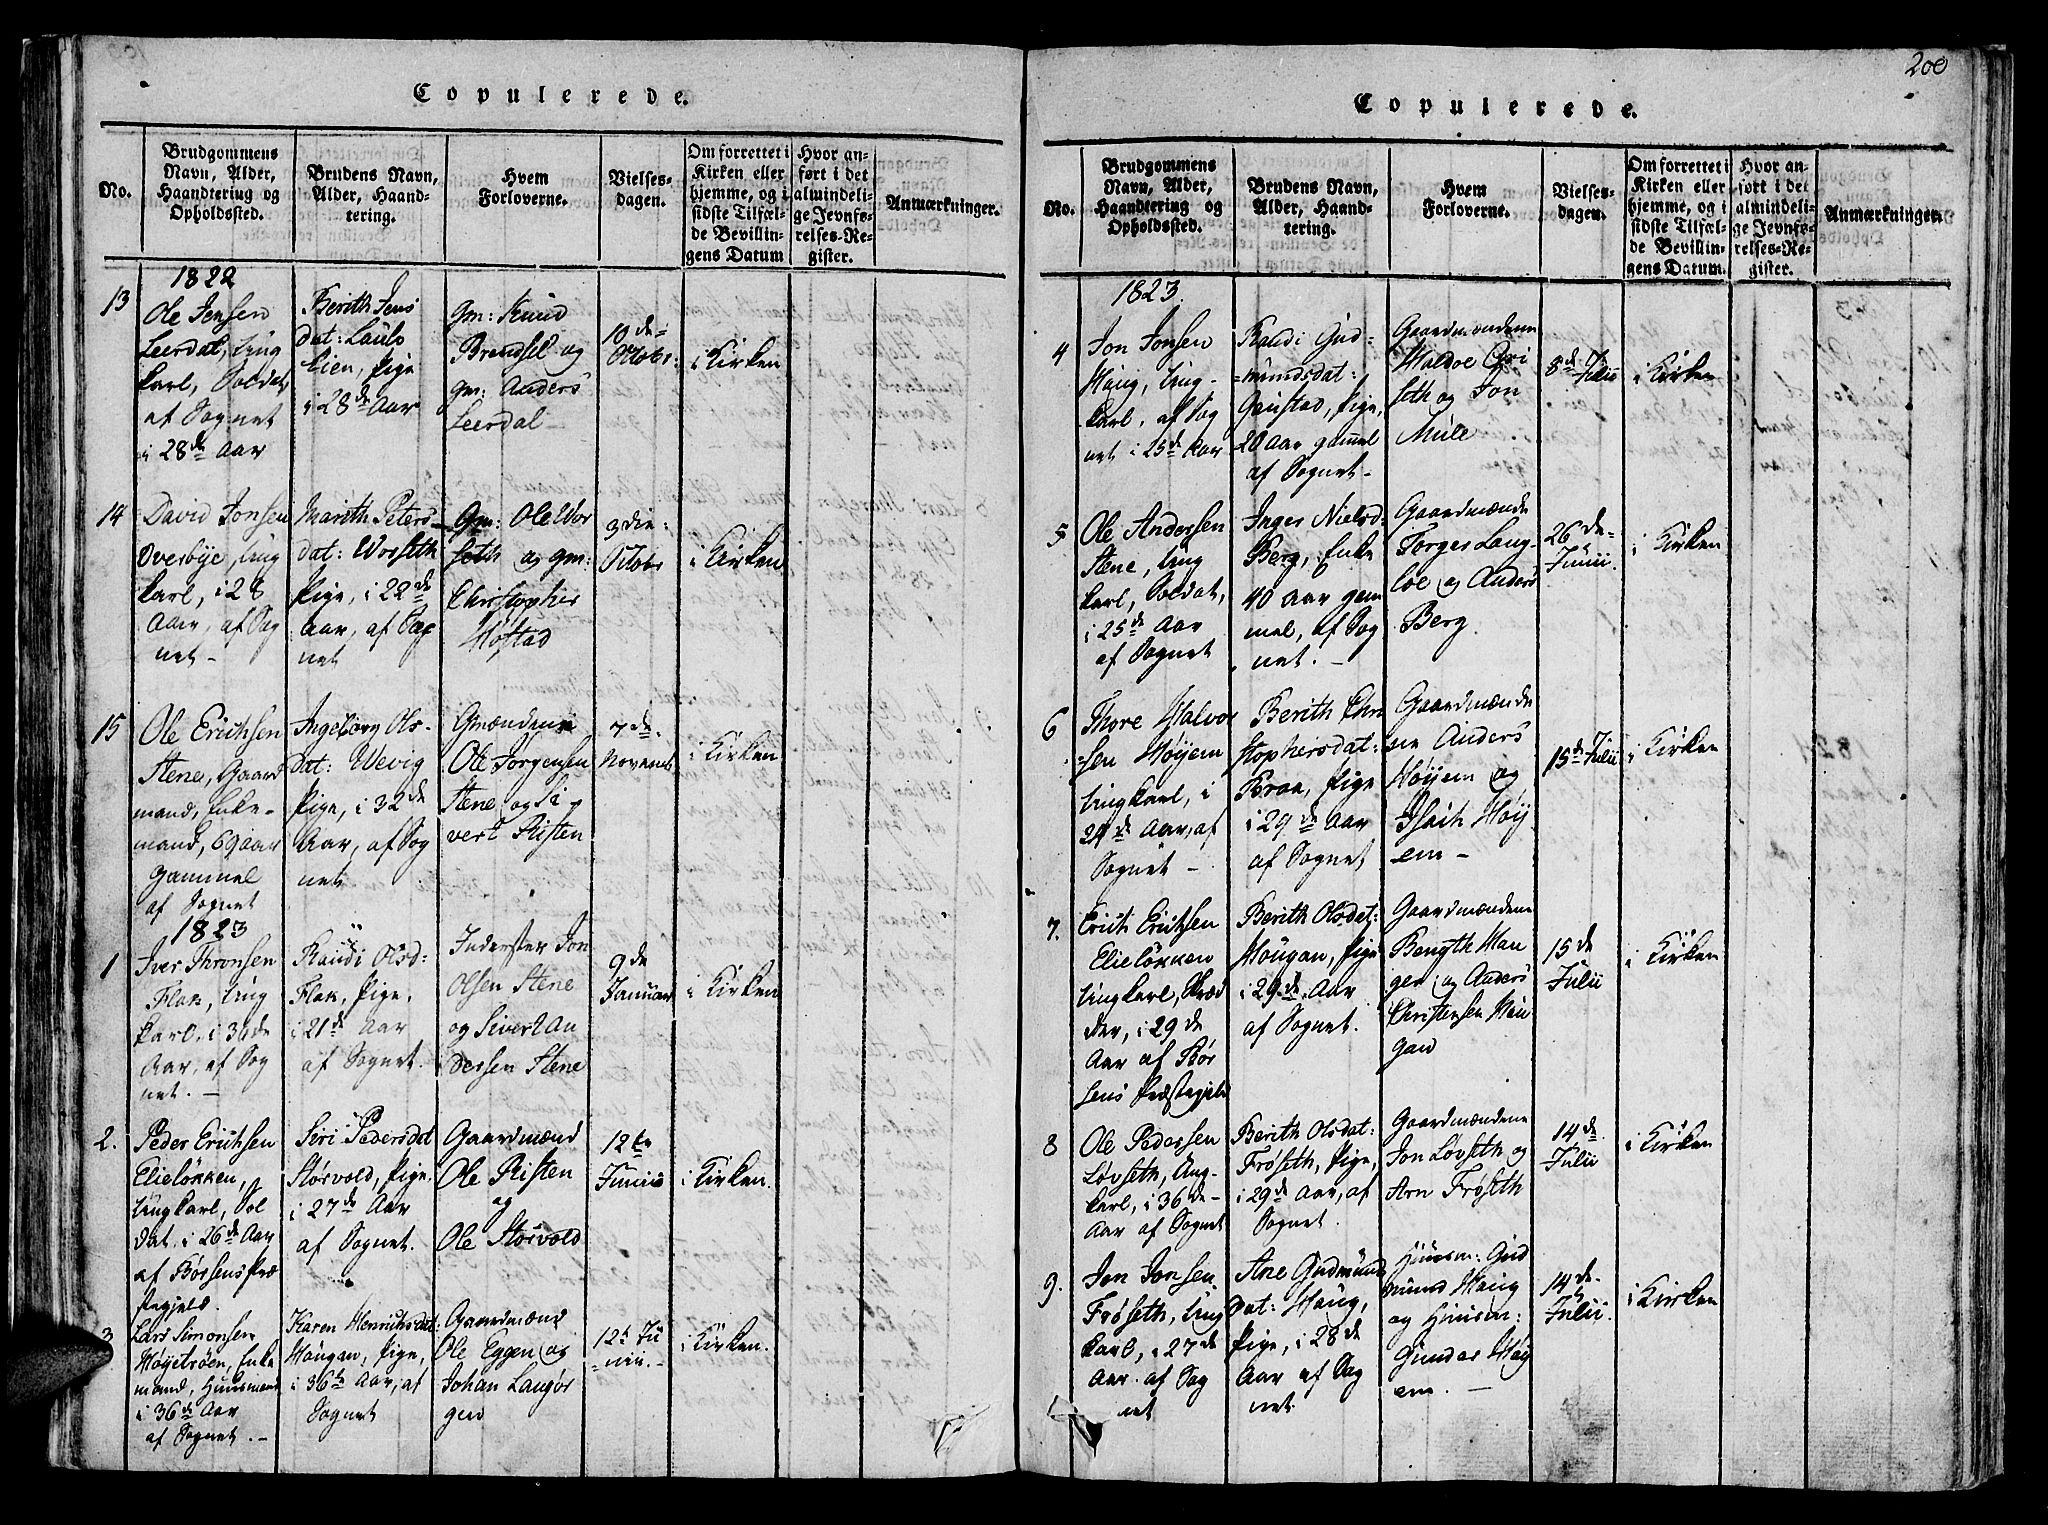 Copulerede.
No.
Brudgommens
Navn, Alder,
Haandtering og
Opholdssted.
Brudens Navn,
Alder, Haand-
tering.
Hvem
Forloverne.
Vielses-
dagen.
Om forrettet i
Kirken eller
hjemme, og i
sidste Tilfæl-
de Bevillin-
gens Datum
Hvor an-
ført i det
almindeli-
ge Jevnfø-
relses-Re-
gister.
Anmærkninger.
1822
13
Ole Jensen
Leerdal, Ung
karl, Soldat,
af Sognet
i 28de Aar
Berith Jens
dat: Laulo
Lien, Pige
i 28de Aar
Gm: Knud
Brendsel og
gm: Anders
Leerdal
10de
Octobr:
i Kirken
14
David Jonsen
Oversbye, Ung
karl, i 28
Aar, af Sog
net
Marith Peters
dat: Wosseth
Pige, i 22de
Aar, af Sog
net
Gm: Ole Wor
seth og gm:
Christopher
Høstad
Octobr
i Kirken
15
Ole Erichsen
Stene, Gaard
mand, Enke-
mand, 69 aar
gammel
af Sognet
Ingeborg Ols-
dat: Wevig
Pige, i 32de
Aar, af Sog
net
Gmændene
Ole Jørgensen
Stene, og Si
vert Risten
7de
Novemb
i Kirken
1823
1
Iver Thronsen
Flak, Ung
karl, i 30de
Aar, af Sog
net.
Randi Olsd:
Flak, Pige,
i 21de Aar
af Sognet.
Inderster Jon
Olsen Stene
og Sivert An
dersen Stene
9de
Januar
i Kirken
2.
Peder Erichsen
Elieløkken,
Ungkarl, Sol
dat, i 26de Aar
af Børsens Præ
stegjeld.
Siri Pedersdat
Storvold, Pige,
i 27de Aar
af Sognet.
Gaardmænd
Ole Risten
og
Ole Storvold
12te
Junii
i Kirken.
3
Lars Simonsen
Høyetrøen, Enke
mand, Huusmand
i 36de Aar
af Sognet.
Karen Henrichsdat:
Hougan, Pige,
i 36te Aar, af
Sognet
Gaardmænd
Ole Eggen og
Johan Langør
gen
12te Ju
nii.
i Kirken.
200
Copulerede.
No.
Brudgommens
Navn, Alder,
Haandtering og
Opholdssted.
Brudens Navn,
Alder, Haand-
tering.
Hvem
Forloverne.
Vielses-
dagen.
Om forrettet i
Kirken eller
hjemme, og i
sidste Tilfæl-
de Bevillin-
gens Datum.
Hvor an-
ført i det
almindeli-
ge Jevnfø-
relses-Re-
gister.
Anmærkninger.
1823.
4
Jon Jonsen
Haug, Ung-
karl, af Sog
net i 25de Aar
Randi Gud-
mundsdat:
Gaustad, Pige,
20 Aar gammel
af Sognet
Gaardmændene
Haldoe Gri
seth og Jon
Mule
8de
Julii
i Kirken
5
Ole Andersen
Stene, Ung
karl, Soldat,
i 25de Aar
af Sognet
Inger Nielsd:
Berg, Enke
40 aar gam
mel, af Sog
net.
Gaardmænde
Torger Lang-
loe og Anders
Berg.
26de
Junii.
i Kirken
6
Thore Halvor
sen Høyem
Ungkarl, i
Aar, af
Sognet
Berith Chri
stophersdat:
Braa, Pige
i 29de Aar
af Sognet
Gaardmænde
ne Anders
Høyem og
Esaih Høy
em
15de Julii
i Kirken
7.
Erich Erichsen
Elieløkken
Ungkarl, Skræd
der, i 29de
Aar af Bør
sens Præstegjeld
Berith Olsdat:
Hougan, Pige
i 29de Aar
af Sognet.
Gaardmændene
Bength Han
ger og Anders
Christensen Hou
gan
15de
Julii
i Kirken
8
Ole Pedersen
Løvseth, Ung-
karl, i 36de
Aar af Sognet
Berith Olsdat:
Frøseth, Pige,
i 29de Aar, af
Sognet.
Gaardmændene
Jon Løvseth og
Arn Frøseth
14de
Julii
i Kirken
9.
Jon Jonsen
Frøseth, Ung
karl, i 27de
Aar. af Sog
net
Ane Gudmunds
dat: Haug,
Pige, i 28de
Aar af Sog
net.
Huusm: Gud
mund Haug
og Huusm:
Gunder Høy
em.
14de
Julii.
i Kirken